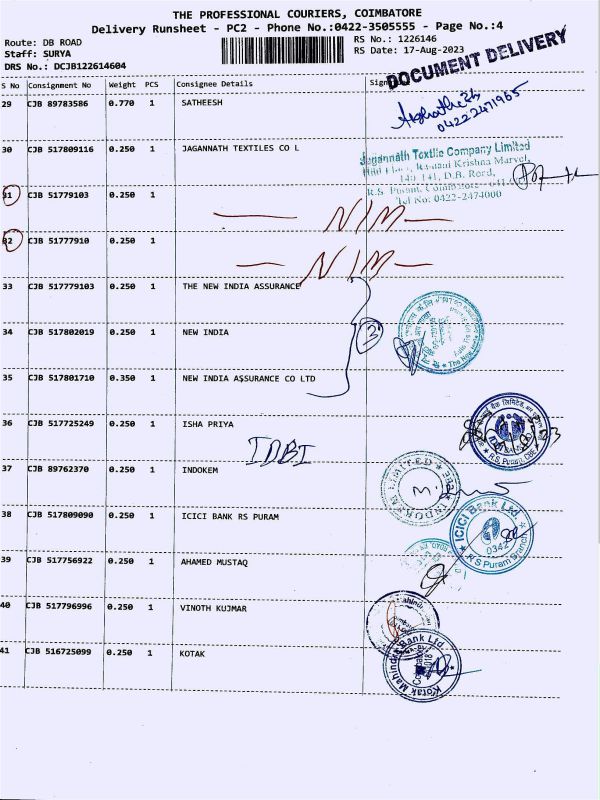 THE PROFESSIONAL COURIERS, COIMBATORE
Delivery Runsheet - PC2 - Phone No.:0422-3505555 - Page No.:4
Route: DB ROAD
Staff: SURYA
DRS No.: DCJB122614604
RS No.: 1226146
RS Date: 17-Aug-2023
DOCUMENT DELIVERY
S No Consignment No Weight PCS Consignee Details Sign
29 CJB 89783586 0.770 1 SATHEESH
04222471965
30 CJB 517809116 0.250 1 JAGANNATH TEXTILES CO L
Jagannath Textile Company Limited
Krishna Marvel,
D.B. Road,
R.S. Puram, Coimbatore
Tel No: 0422-2474000
31 CJB 51779103 0.250 1
NIM
32 CJB 51777910 0.250 1
NIM
33 CJB 517779103 0.250 1 THE NEW INDIA ASSURANCE
34 CJB 517802019 0.250 1 NEW INDIA
3
35 CJB 517801710 0.350 1 NEW INDIA ASSURANCE CO LTD
36 CJB 517725249 0.250 1 ISHA PRIYA
IDBI
R.S. Puram
37 CJB 89762370 0.250 1 INDOKEM
INDOKEM LIMITED
38 CJB 517809090 0.250 1 ICICI BANK RS PURAM
ICICI Bank Ltd
0342
R S Puram Branch
39 CJB 517756922 0.250 1 AHAMED MUSTAQ
40 CJB 517796996 0.250 1 VINOTH KUJMAR
41 CJB 516725099 0.250 1 KOTAK
Kotak Mahindra Bank Ltd.